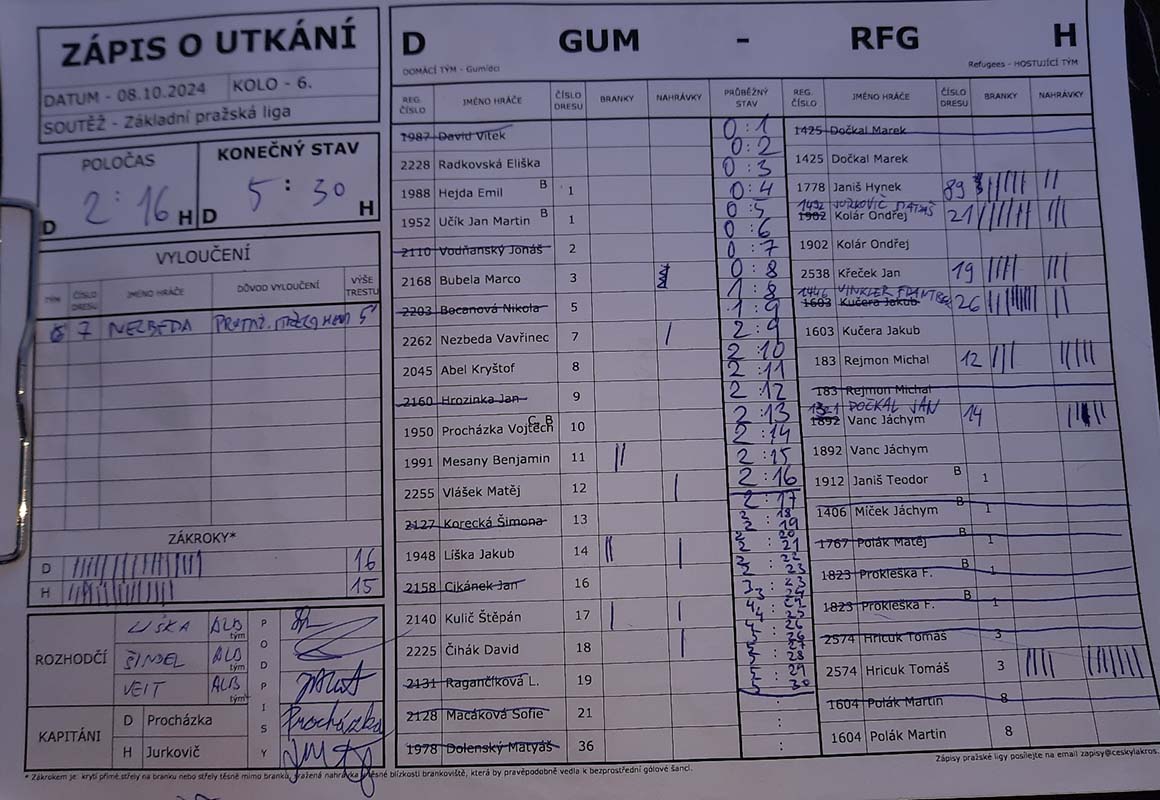 ZÁPIS O UTKÁNÍ
DATUM - 08.10.2024 KOLO - 6.
SOUTĚŽ - Základní pražská liga
POLOČAS KONEČNÝ STAV
D 2 : 16 H D 5 : 30 H
VYLOUČENÍ
TÝM ČÍSLO DRESU JMÉNO HRÁČE DŮVOD VYLOUČENÍ VÝŠE TRESTU
7 NEZBEDA 5'
ZÁKROKY*
D 16
H 15
ROZHODČÍ LIŠKA ALB tým
ŠINDEL ALB tým
VEIT ALB tým
PODPISY
KAPITÁNI D Procházka Procházka
H Jurkovič
D GUM - RFG H
DOMÁCÍ TÝM - Gumídci Refugees - HOSTUJÍCÍ TÝM
REG. ČÍSLO JMÉNO HRÁČE ČÍSLO DRESU BRANKY NAHRÁVKY PRŮBĚŽNÝ STAV REG. ČÍSLO JMÉNO HRÁČE ČÍSLO DRESU BRANKY NAHRÁVKY
1987 David Vítek
2228 Radkovská Eliška
1988 Hejda Emil B 1
1952 Učík Jan Martin B 1
2110 Vodňanský Jonáš 2
2168 Bubela Marco 3
2203 Becanová Nikola 5
2262 Nezbeda Vavřinec 7
2045 Abel Kryštof 8
2160 Hrozinka Jan 9
1950 Procházka Vojtěch C, B 10
1991 Mesany Benjamin 11
2255 Vlášek Matěj 12
2127 Korecká Šimona 13
1948 Líška Jakub 14
2158 Cikánek Jan 16
2140 Kulič Štěpán 17
2225 Čihák David 18
2131 Ragančíková L. 19
2128 Macáková Sofie 21
1978 Dolenský Matyáš 36
0 : 1
0 : 2
0 : 3
0 : 4
0 : 5
0 : 6
0 : 7
0 : 8
1 : 8
1 : 9
2 : 9
2 : 10
2 : 11
2 : 12
2 : 13
2 : 14
2 : 15
2 : 16
2 : 17
2 : 18
2 : 19
2 : 20
2 : 21
2 : 22
2 : 23
3 : 23
3 : 24
4 : 25
5 : 26
5 : 27
5 : 28
5 : 29
5 : 30
1425 Dočkal Marek
1425 Dočkal Marek
1778 Janiš Hynek 89
1492 JURKOVIČ MATYÁŠ
1902 Kolár Ondřej 21
1902 Kolár Ondřej
2538 Křeček Jan 19
1446 VINKLER FRANTIŠEK
1603 Kučera Jakub 26
1603 Kučera Jakub
183 Rejmon Michal 12
183 Rejmon Michal
DOČKAL JAN
1892 Vanc Jáchym 14
1892 Vanc Jáchym
1912 Janiš Teodor B 1
1406 Míček Jáchym B 1
1767 Polák Matěj B 1
1823 Prokleška F. B 1
1823 Prokleška F. B 1
2574 Hricuk Tomáš 3
2574 Hricuk Tomáš 3
1604 Polák Martin 8
1604 Polák Martin 8
* Zákrokem je: krytí přímé střely na branku nebo střely těsně mimo branku, sražená nahrávka v těsné blízkosti brankoviště, která by pravěpodobně vedla k bezprostřední gólové šanci.
Zápisy pražské ligy posílejte na email zapisy@ceskylakros.